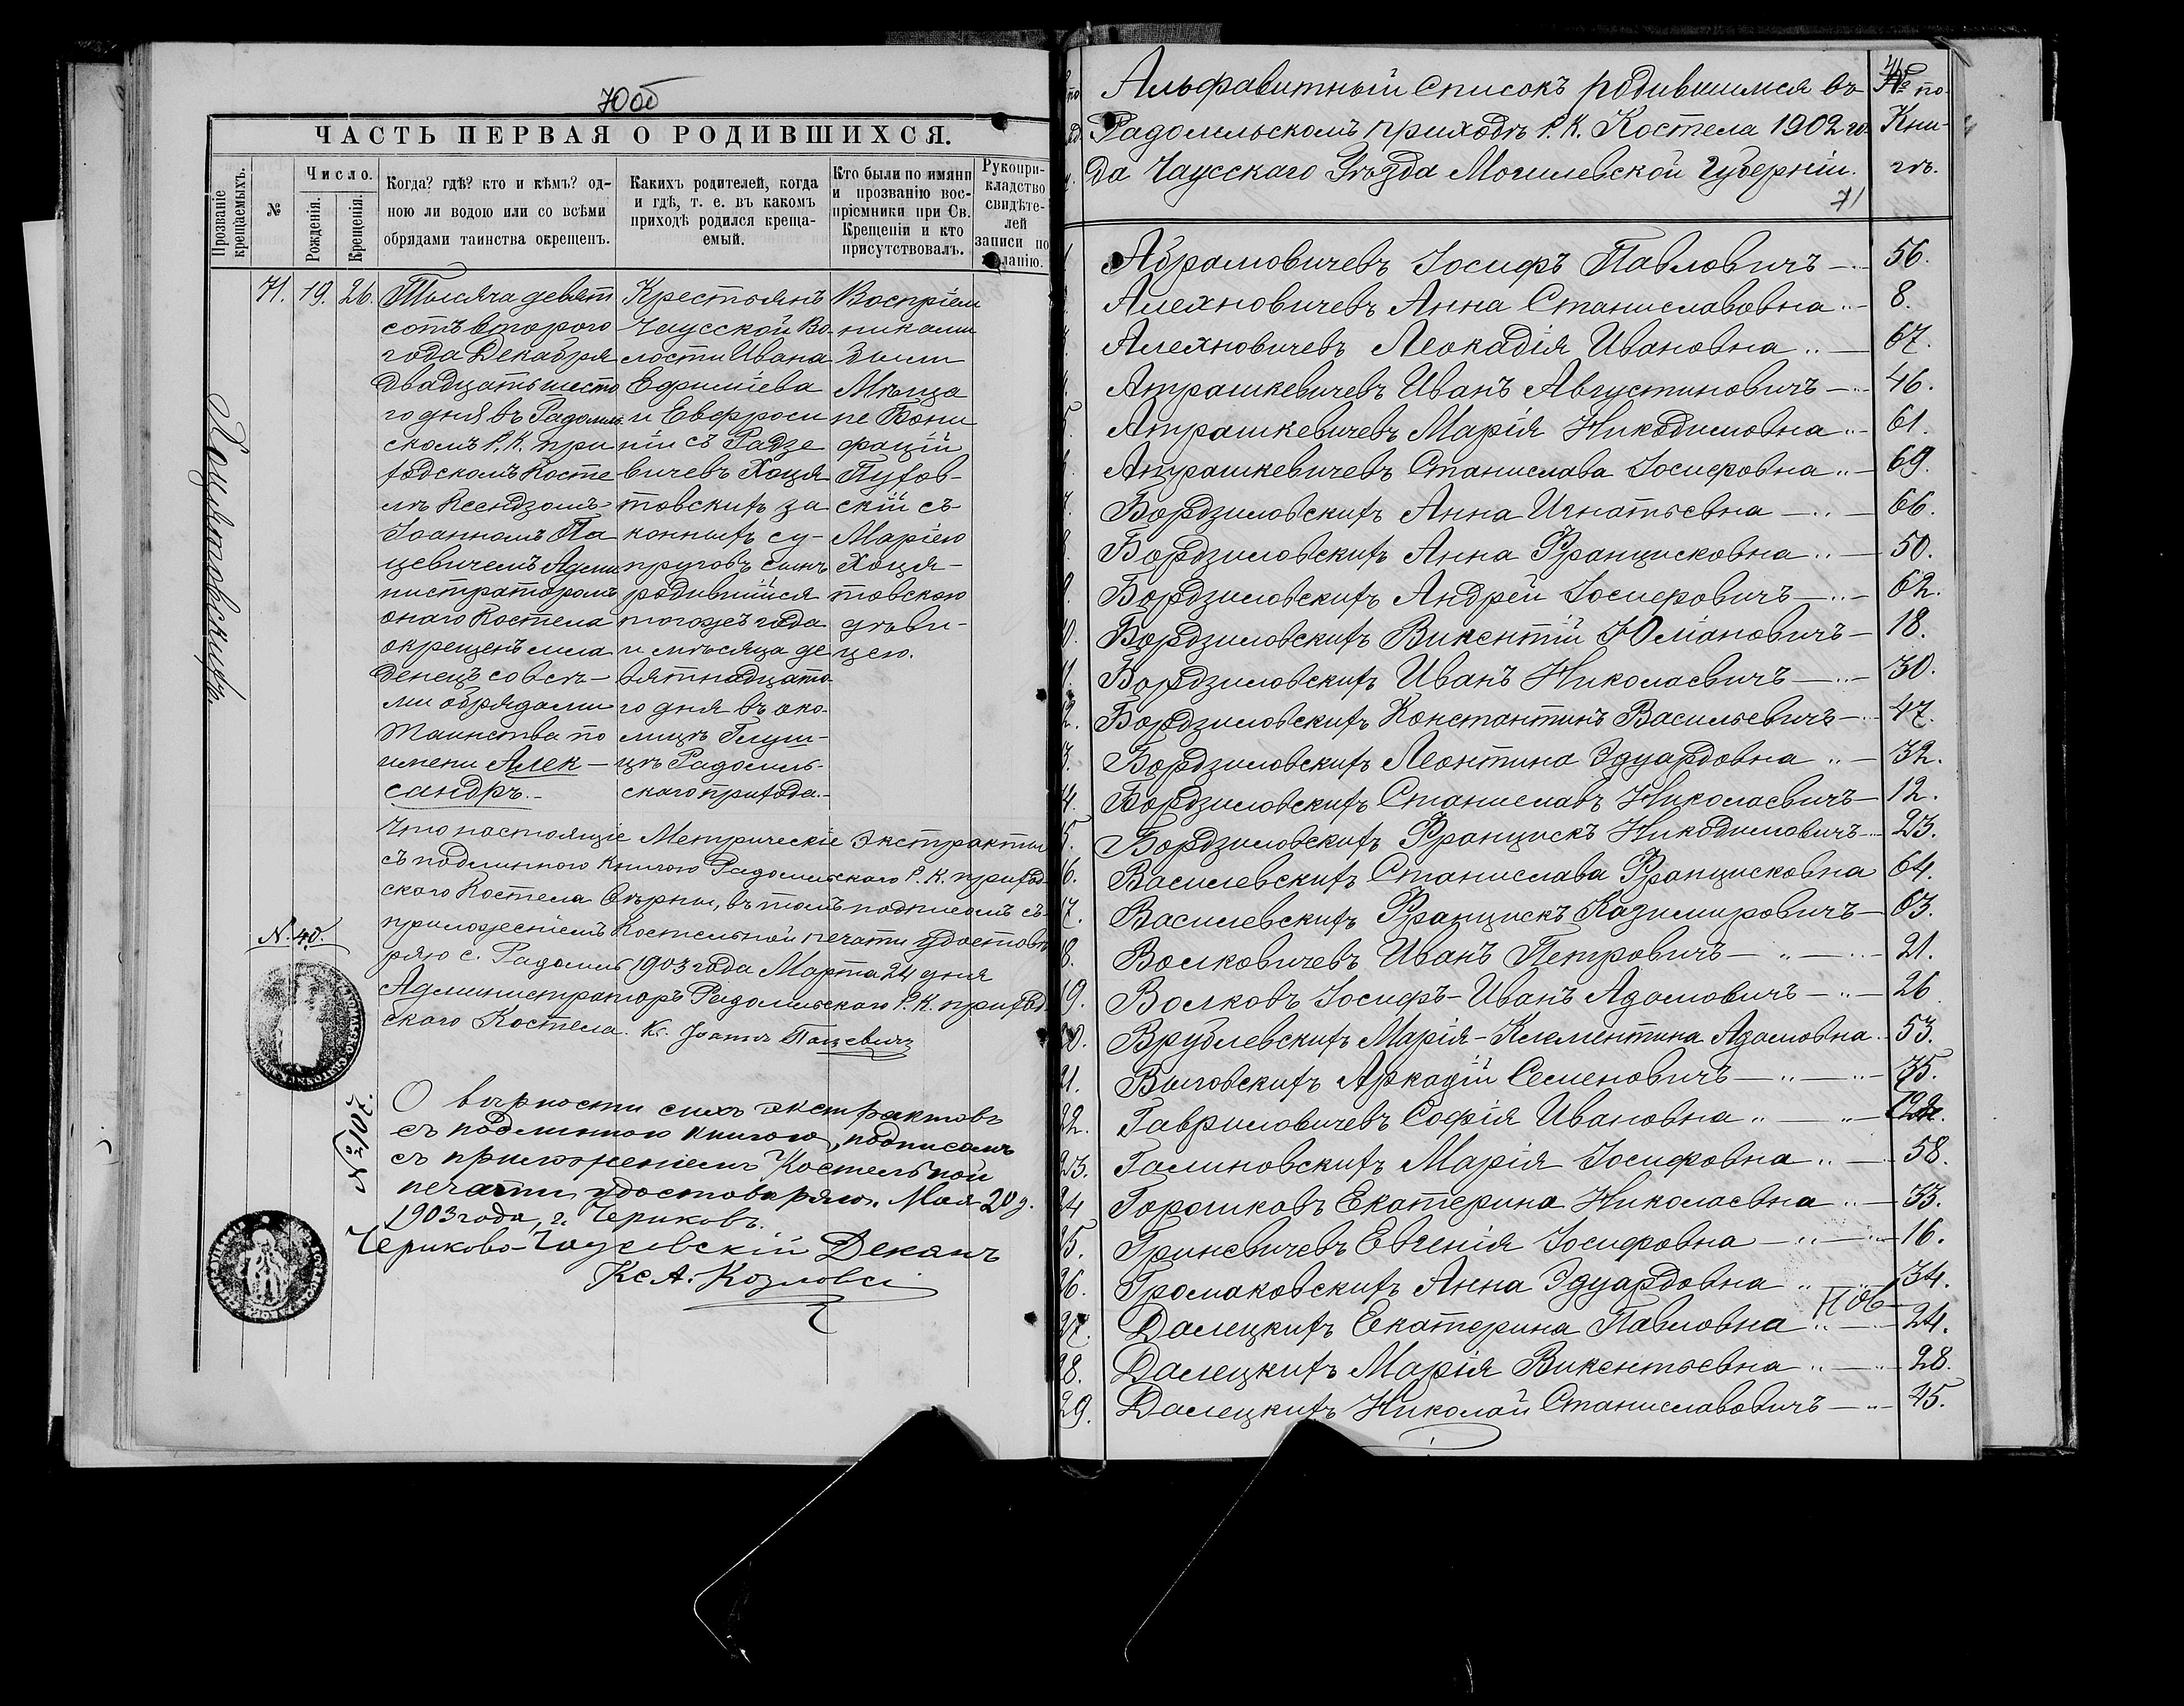 70об
ЧАСТЬ ПЕРВАЯ О РОДИВШИХСЯ.
Прозваніе крещаемыхъ.
№
Число.
Рожденія.
Крещенія.
Когда? гдѣ? кто и кѣмъ? од-
ною ли водою или со всѣми
обрядами таинства окрещенъ.
Какихъ родителей, когда
и гдѣ, т. е. въ какомъ
приходѣ родился креща-
емый.
Кто были по имяни
и прозванію вос-
пріемники при Св.
Крещеніи и кто
присутствовалъ.
Рукопри-
кладство
свидѣте-
лей
записи по
желанію.
Хоцятовскихъ.
71. 19. 26.
Тысяча девят
сотъ второго
года Декабря
двадцать шесто
го дня въ Радомль
скомъ Р. К. при
ходскомъ Косте
лѣ Ксендзомъ
Іоанномъ Па
цевичемъ Адми
нистраторомъ
онаго Костела
окрещенъ мла
денецъ со всѣ-
ми обрядами
Таинства по
имени Алек-
сандръ.-
Крестьянъ
Чаусской Во-
лости Ивана
Ефиміева
и Евфроси
ніи съ Радзе
вичевъ Хоця
товскихъ за
конныхъ су-
пруговъ сынъ
родившійся
тогожъ года
и мѣсяца де
вятнадцато
го дня въ око-
лицѣ Глуш-
цѣ Радомль-
скаго прихода.-
Воспріем
никами
были
Мѣща
не Вони
фацій
Пухов-
скій съ
Маріею
Хоця-
товскою
дѣви-
цею.
Что настоящіе Метрическіе экстракты
съ подлинною книгою Радомльскаго Р. К. приход-
скаго Костела вѣрны, въ томъ подписомъ съ
приложеніемъ Костельной печати удостовѣ
ряю с. Радомль 1903 года Марта 24 дня
Администраторъ Радомльскаго Р. К. приход
скаго Костела. Кс. Іоаннъ Пацевичъ
N. 40.
О вѣрности сихъ экстрактовъ
съ подлинною книгою, подписомъ
съ приложеніемъ Костельной
печати удостоверяю. Мая 20 д.
1903 года, г. Чериковъ.
Чериково-Чаусовскій Деканъ
Кс А. Козловсі
№ 210
Альфавитный списокъ родившимся въ
Радомльскомъ приходѣ Р. К. Костела 1902 го-
да Чаусскаго Уѣзда Могилевской Губерніи.
№ по
Кни-
гѣ.
71
Абрамовичевъ Іосифъ Павловичъ — 56.
Алехновичевъ Анна Станиславовна — 8.
Алехновичевъ Леокадія Ивановна — 67.
Атрашкевичевъ Иванъ Августиновичъ — 46.
5. Атрашкевичевъ Марія Никодимовна — 61.
Атрашкевичевъ Станислава Іосифовна — 69.
7. Бордзиловскихъ Анна Игнатьевна — 66.
8. Бордзиловскихъ Анна Францисковна — 50.
9. Бордзиловскихъ Андрей Іосифовичъ — 62.
10. Бордзиловскихъ Викентій Юліановичъ — 18.
11. Бордзиловскихъ Иванъ Николаевичъ — 30.
12. Бордзиловскихъ Константинъ Васильевичъ — 47.
13. Бордзиловскихъ Леонтина Эдуардовна — 32.
14. Бордзиловскихъ Станиславъ Николаевичъ — 12.
15. Бордзиловскихъ Францискъ Никодимовичъ — 23.
16. Василевскихъ Станислава Францисковна 64.
17. Василевскихъ Францискъ Казимировичъ — 63.
18. Волковичевъ Иванъ Петровичъ — 21.
19. Волковъ Іосифъ-Иванъ Адамовичъ — 26
20. Врублевскихъ Марія-Клементина Адамовна 53.
21. Выговскихъ Аркадій Семеновичъ —
22. Гавриловичевъ Софія Ивановна —
23. Галиновскихъ Марія Іосифовна — 58.
24 Горошковъ Екатерина Николаевна — 33.
25. Гриневичевъ Евгенія Іосифовна — 16.
26. Громаковскихъ Анна Эдуардовна — 34.
27. Далецкихъ Екатерина Павловна — 24.
28. Далецкихъ Марія Викентьевна — 28.
29. Далецкихъ Николай Станиславовичъ — 45.